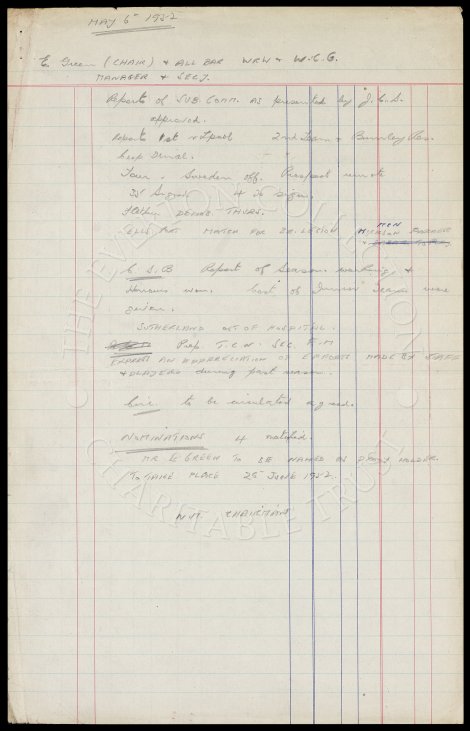 MAY 6th 1952
E Green (CHAIR) & ALL BAR WRW & W.C.G.
MANAGER & SECY.
Reports of SUB. COMM. AS presented by J.C.S.
approved.
Reports 1st v L'pool 2nd Team v Burnley Res.
Cup Denial.
Tour Sweden off. Prospect remote
35 Signed 4 to Sign.
DEFINE THURS.
MATCH FOR DECISION MEN
Report of Season workings &
Honours won. Cost of were
given.
SUTHERLAND OUT OF HOSPITAL.
Prop. T.C.N. Sec. F.M
EXPRESS AN APPRECIATION OF EFFORTS MADE BY STAFF
& PLAYERS during past season.
Circ. to be circulated agreed.
NOMINATIONS 4 notified.
MR E GREEN TO BE NAMED AS PROXY HOLDER.
TO TAKE PLACE 25th JUNE 1952.
CHAIRMAN
THE EVERTON COLLECTION
CHARITABLE TRUST